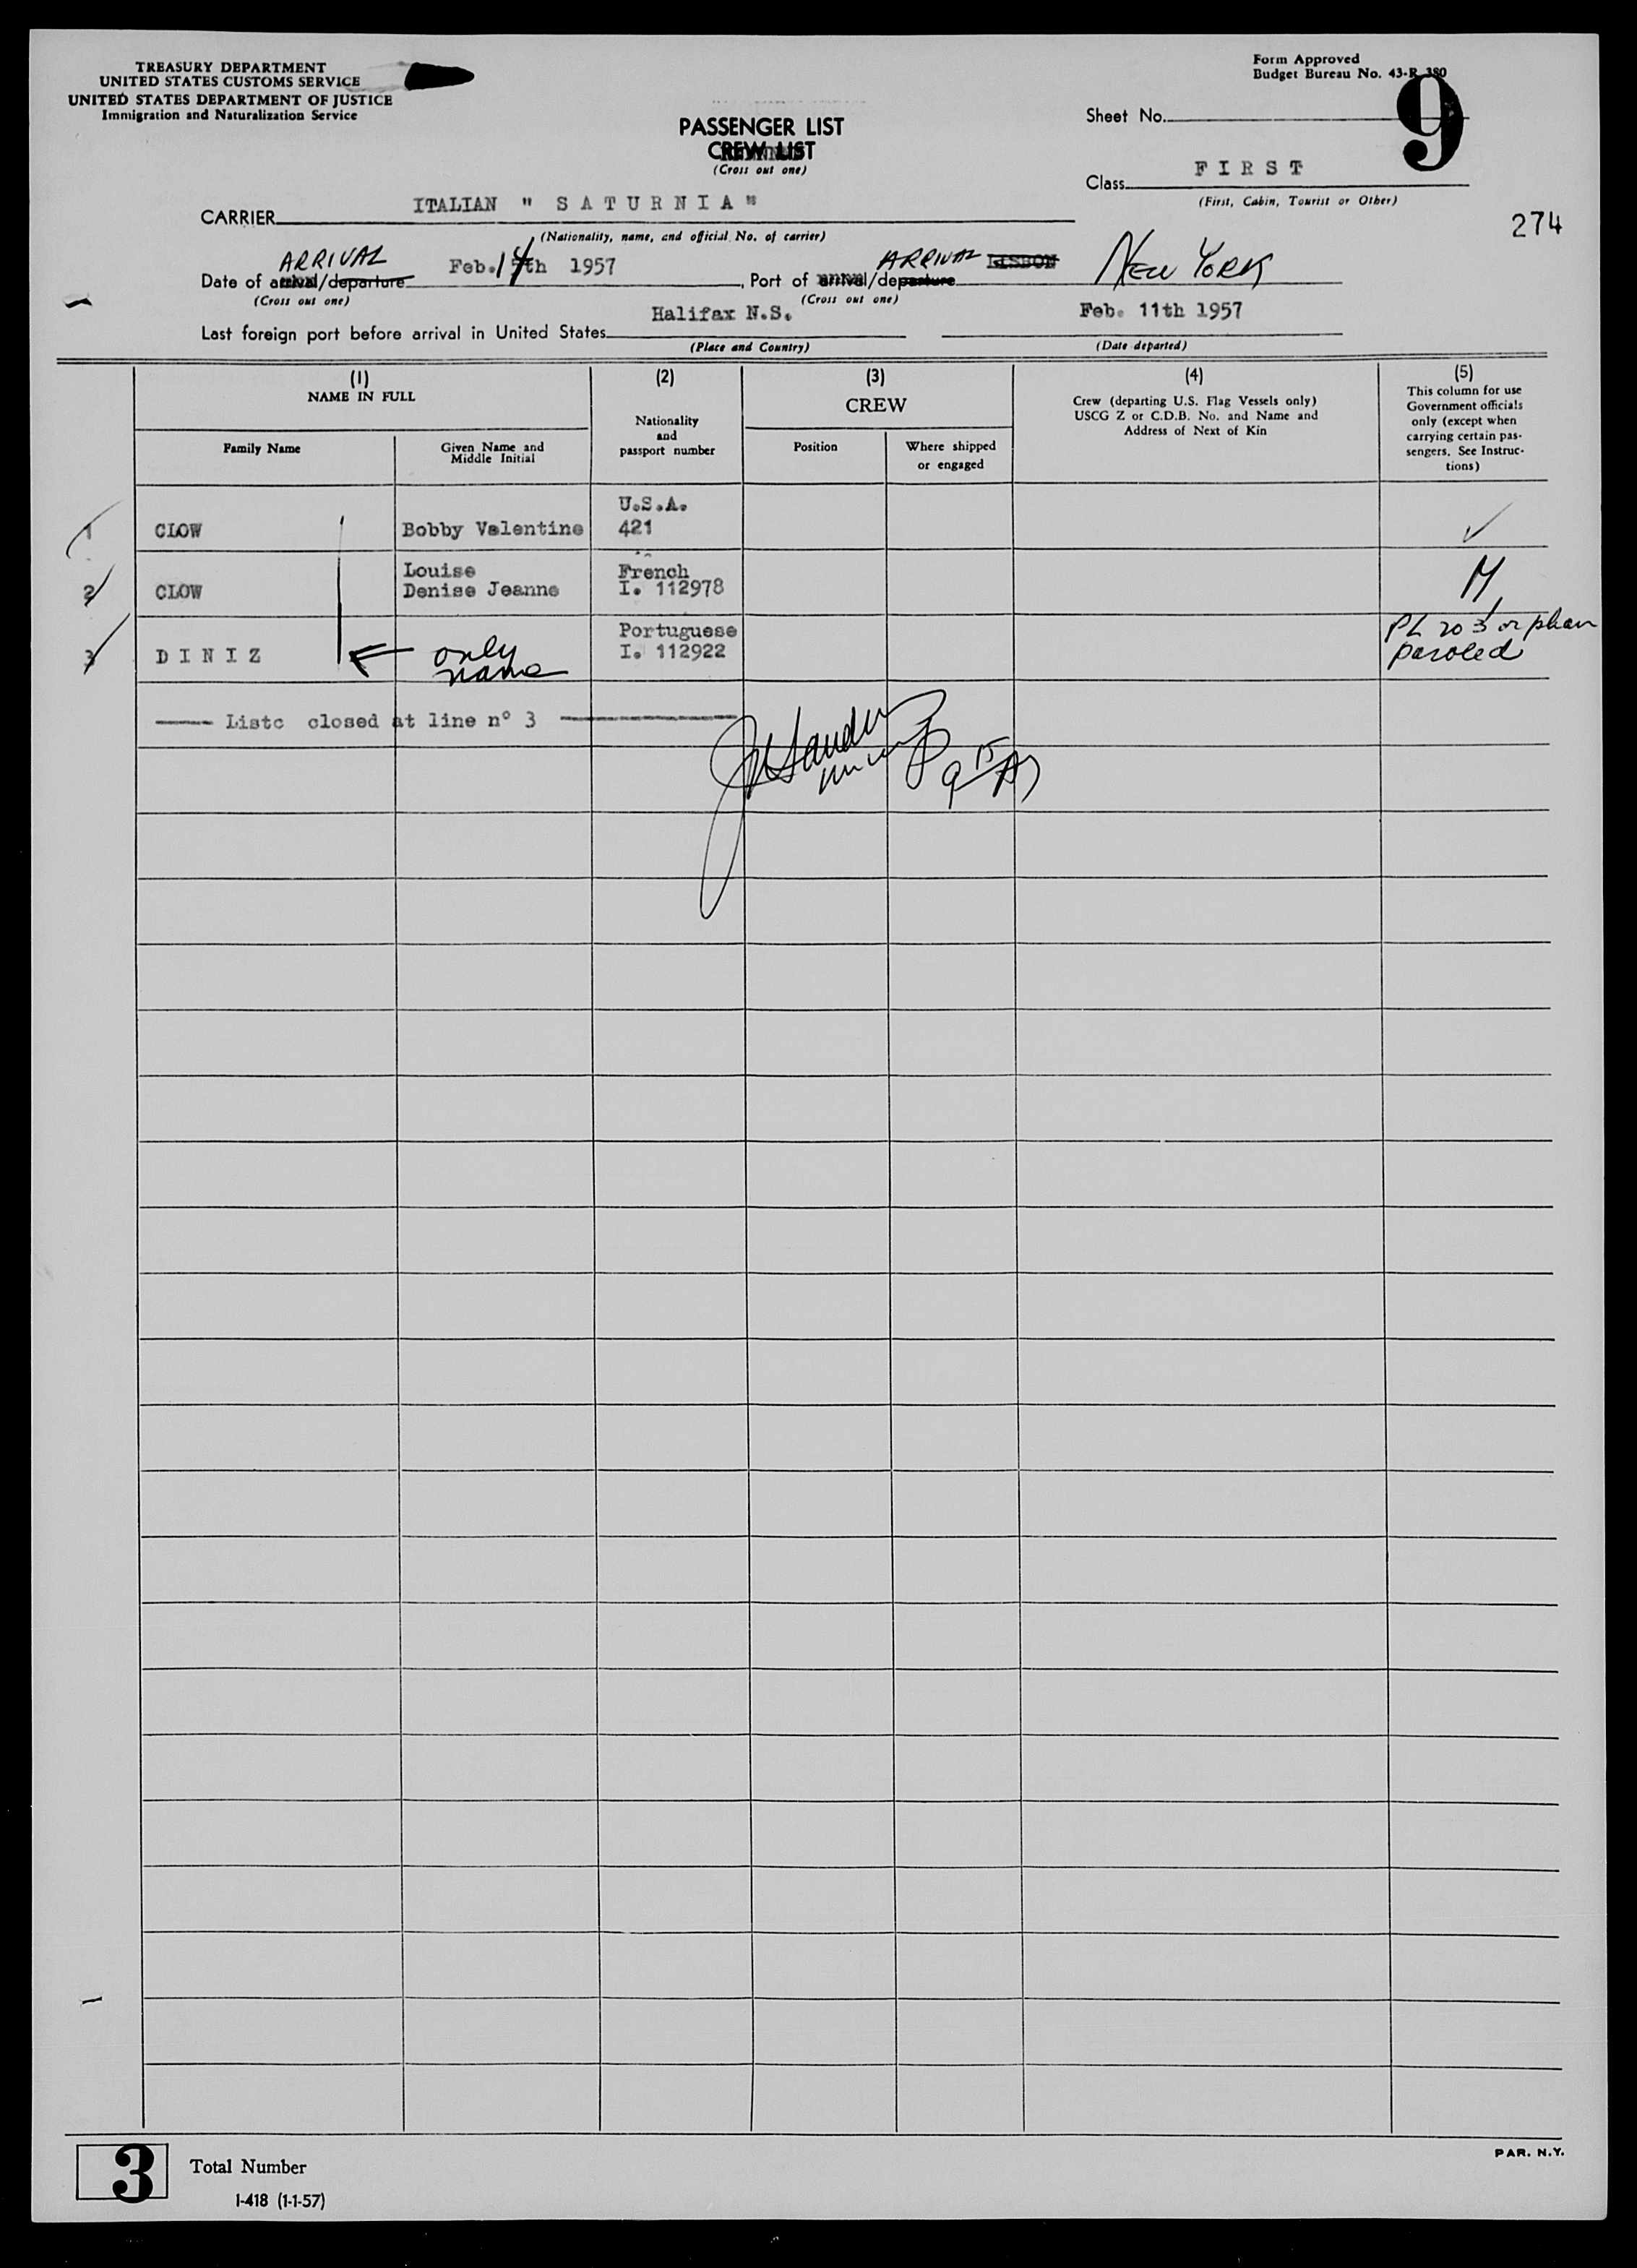 TREASURY DEPARTMENT
UNITED STATES CUSTOMS SERVICE
UNITED STATES DEPARTMENT OF JUSTICE
Immigration and Naturalization Service
Form Approved
Budget Bureau No. 43-R 380
Sheet No. 9
PASSENGER LIST
CREW LIST
(Cross out one)
Class FIRST
(First, Cabin, Tourist or Other)
274
CARRIER ITALIAN " SATURNIA "
(Nationality, name, and official No. of carrier)
ARRIVAL
Date of arrival/departure Feb. 14th 1957
(Cross out one)
ARRIVAL LISBON
Port of arrival/departure NEW YORK
(Cross out one)
Last foreign port before arrival in United States Halifax N.S. Feb. 11th 1957
(Place and Country) (Date departed)
(1)
NAME IN FULL
Family Name
Given Name and
Middle Initial
(2)
Nationality
and
passport number
(3)
CREW
Position
Where shipped
or engaged
(4)
Crew (departing U.S. Flag Vessels only)
USCG Z or C.D.B. No. and Name and
Address of Next of Kin
(5)
This column for use
Government officials
only (except when
carrying certain pas-
sengers. See Instruc-
tions)
U.S.A.
1 CLOW Bobby Valentine 421 ✓
Louise French
2 CLOW Denise Jeanne I. 112978 M
Portuguese PL 203 orphan
3 DINIZ only name I. 112922 paroled
Liste closed at line nº 3
3 Total Number
I-418 (1-1-57)
PAR. N.Y.